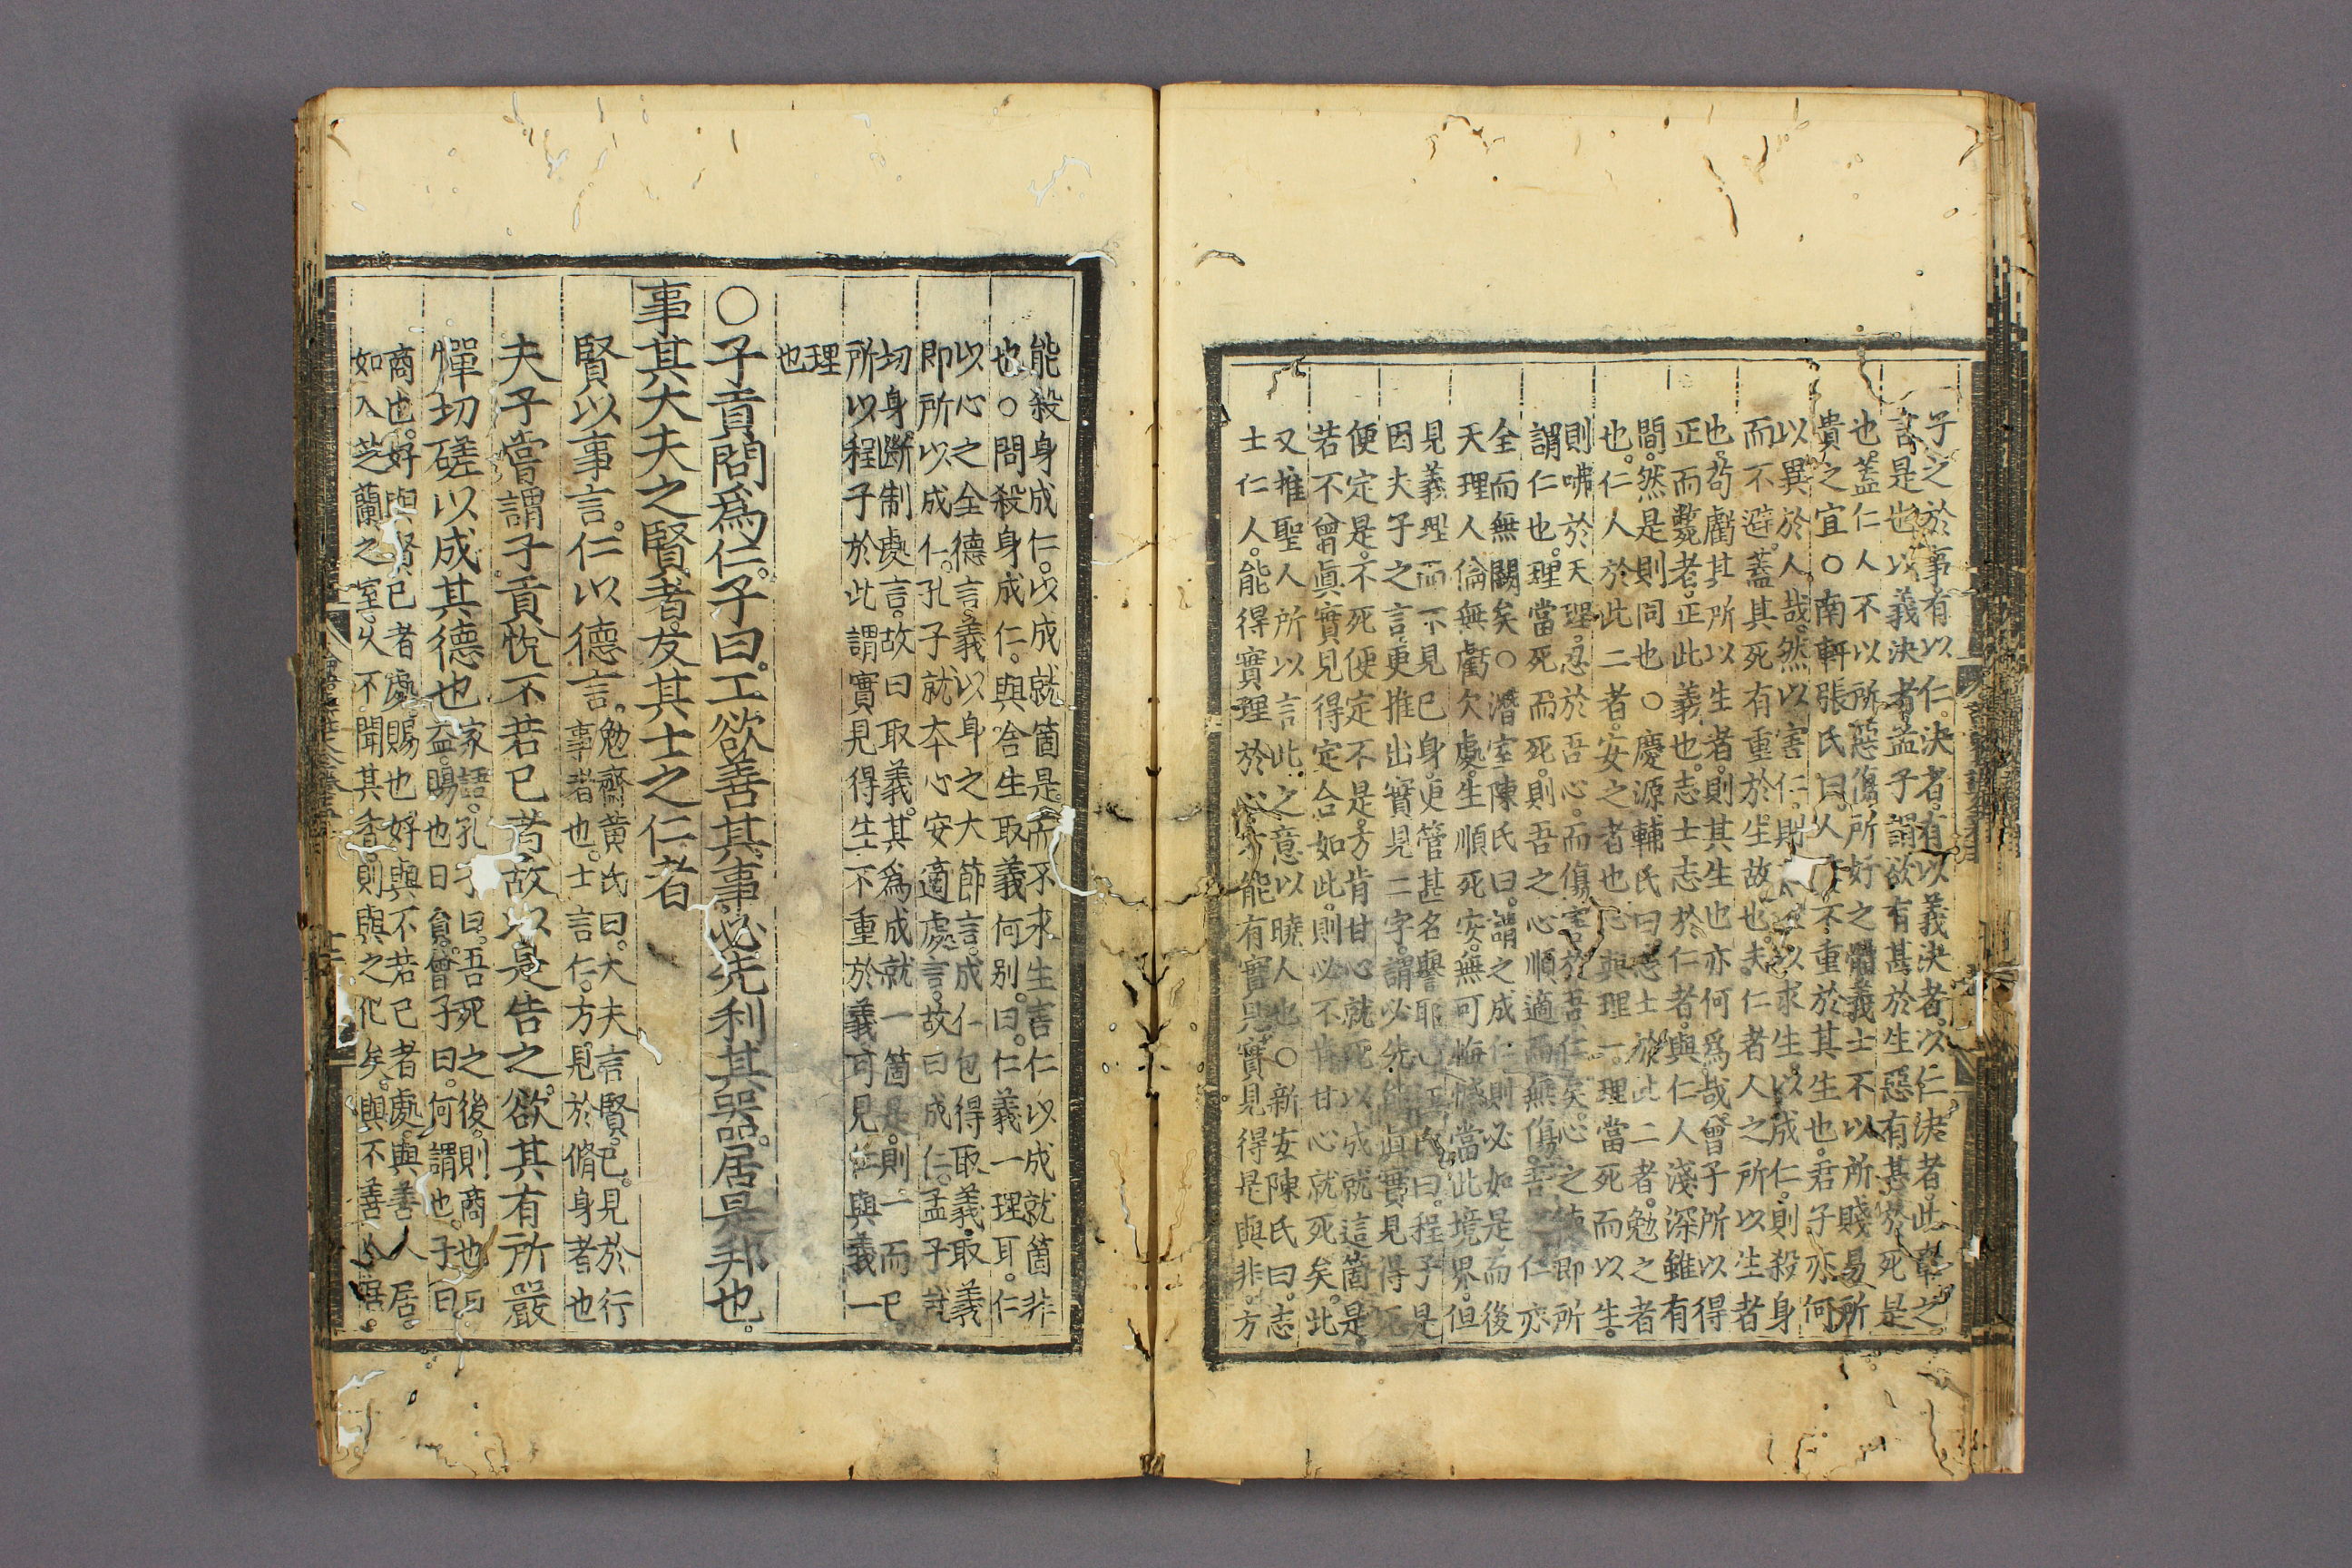 子之於事有以仁決者有以義決者以仁決者此章之
言是也以義決者孟子謂欲有甚於生惡有甚於死是
也蓋仁人不以所惡傷所好之體義士不以所賤易所
貴之宜○南軒張氏曰人 不重於其生也君子亦何
以異於人哉然以害仁則 以求生以成仁則殺身
而不避蓋其死有重於生故也夫仁者人之所以生者
也苟虧其所以生者則其生也亦何爲哉曾子所以得
正而斃者正此義也志士志於仁者與仁人淺深雖有
間然是則同也○慶源輔氏曰志士於此二者勉之者
也仁人於此二者安之者也心與理一理當死而以生
則咈於天理忍於吾心而傷害於吾仁矣心之德即所
謂仁也理當死而死則吾之心順適而無傷 仁亦
全而無闕矣○潛室陳氏曰謂之成仁則必如是而後
天理人倫無虧欠處生順死安無可悔憾當此境界但
見義理而不見己身更管甚名譽耶 氏曰程子是
因夫子之言更推出實見二字謂必先 眞實見得死
便定是不死便定不是方肯甘心就死以成就這箇是
若不曾眞實見得定合如此則必不肯甘心就死矣此
又推聖人所以言此之意以曉人也○新安陳氏曰志
士仁人能得實理於心方能有實見實見得是與非方
能殺身成仁以成就箇是而不求生害仁以成就箇非
也○問殺身成仁與舍生取義何别曰仁義一理耳仁
以心之全德言義以身之大節言成仁包得取義取義
即所以成仁孔子就本心安適處言故曰成仁孟子就
切身斷制處言故曰取義其爲成就一箇是則一而已
所以程子於此謂實見得生不重於義可見仁與義一
理
也
○子貢問爲仁子曰工欲善其事必先利其器居是邦也
事其大夫之賢者友其士之仁者
賢以事言仁以德言勉齋黃氏曰大夫言賢已見於行
事者也士言仁方見於脩身者也
夫子嘗謂子貢悅不若己者故以是告之欲其有所嚴
憚切磋以成其德也家語孔子曰吾死之後則商也日
益賜也日貟曾子曰何謂也子曰
商也好與賢已者處賜也好與不若已者處與善人居
如入芝蘭之室久不聞其香則與之化矣與不善人居